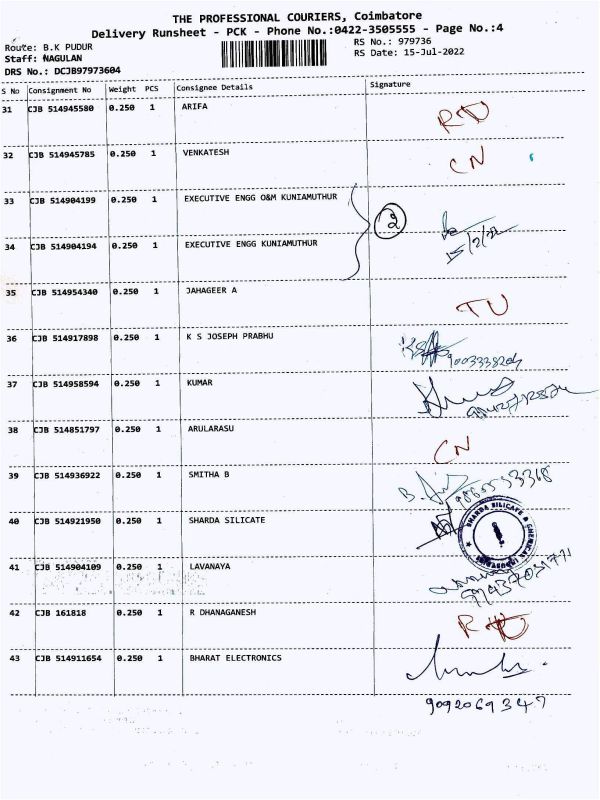 THE PROFESSIONAL COURIERS, Coimbatore
Delivery Runsheet - PCK - Phone No.:0422-3505555 - Page No.:4
Route: B.K PUDUR
RS No.: 979736
Staff: NAGULAN
RS Date: 15-Jul-2022
DRS No.: DCJB97973604
S No Consignment No Weight PCS Consignee Details Signature
31 CJB 514945580 0.250 1 ARIFA RD
32 CJB 514945785 0.250 1 VENKATESH CN
33 CJB 514904199 0.250 1 EXECUTIVE ENGG O&M KUNIAMUTHUR
2
34 CJB 514904194 0.250 1 EXECUTIVE ENGG KUNIAMUTHUR
35 CJB 514954340 0.250 1 JAHAGEER A TU
36 CJB 514917898 0.250 1 K S JOSEPH PRABHU
37 CJB 514958594 0.250 1 KUMAR
38 CJB 514851797 0.250 1 ARULARASU CN
39 CJB 514936922 0.250 1 SMITHA B
40 CJB 514921950 0.250 1 SHARDA SILICATE
SHARDA SILICATE & CHEMICAL INDUSTRIES
41 CJB 514904109 0.250 1 LAVANAYA
42 CJB 161818 0.250 1 R DHANAGANESH
43 CJB 514911654 0.250 1 BHARAT ELECTRONICS
9092069347